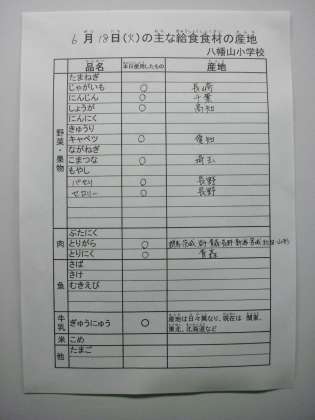 6月18日(火)の主な給食食材の産地
八幡山小学校
品名 本日使用したもの 産地
野菜・果物
たまねぎ
じゃがいも ○ 長崎
にんじん ○ 千葉
しょうが ○ 高知
にんにく
きゅうり
キャベツ ○ 愛知
ながねぎ
こまつな ○ 埼玉
もやし
パセリ ○ 長野
セロリー ○ 長野
肉
ぶたにく
とりがら ○
とりにく ○ 青森
魚
さば
さけ
むきえび
牛乳
ぎゅうにゅう ○ 産地は日々異なり、現在は 関東、
東北、北海道など
米 こめ
他 たまご